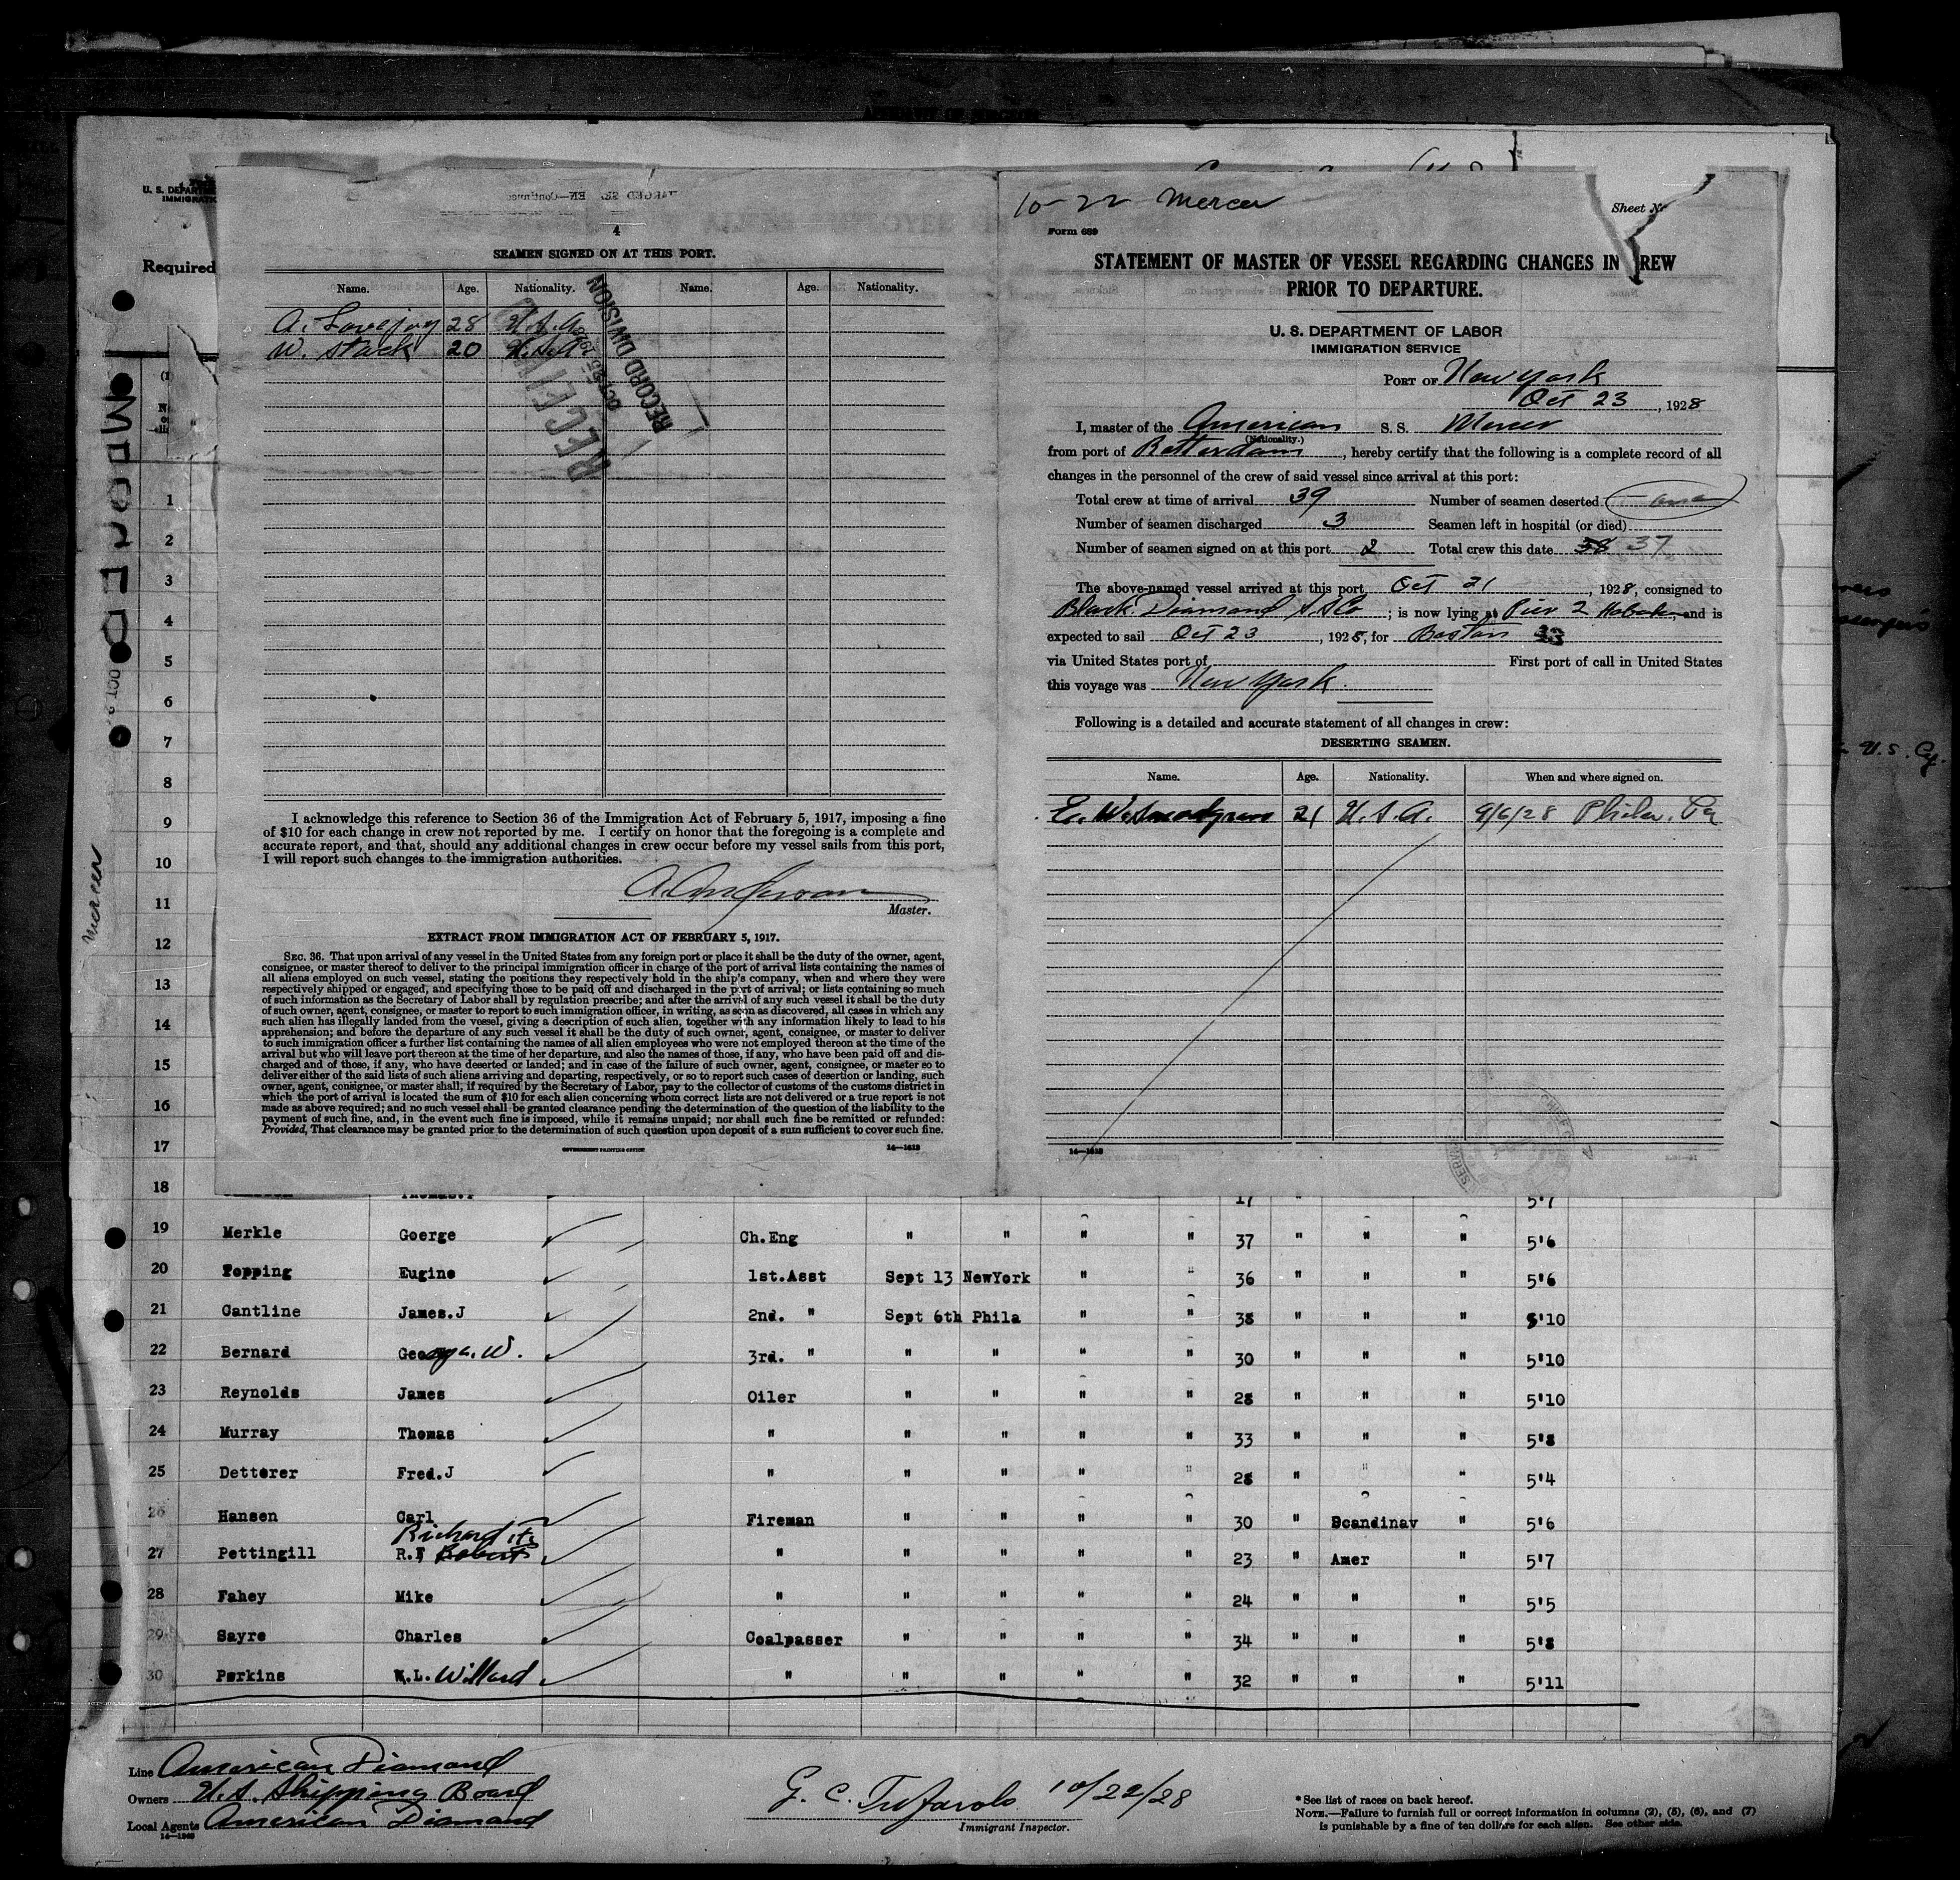 U. S. DEPARTM
IMMIGRATI
Required
4
SEAMEN SIGNED ON AT THIS PORT.
Name. Age. Nationality. Name. Age. Nationality.
A. Lovejoy 28 U.S.A.
W. Stack 20 U.S.A.
RECEIVED
OCT 25 1928
RECORD DIVISION
I acknowledge this reference to Section 36 of the Immigration Act of February 5, 1917, imposing a fine
of $10 for each change in crew not reported by me. I certify on honor that the foregoing is a complete and
accurate report, and that, should any additional changes in crew occur before my vessel sails from this port,
I will report such changes to the immigration authorities.
A. Anderson
Master.
EXTRACT FROM IMMIGRATION ACT OF FEBRUARY 5, 1917.
SEC. 36. That upon arrival of any vessel in the United States from any foreign port or place it shall be the duty of the owner, agent,
consignee, or master thereof to deliver to the principal immigration officer in charge of the port of arrival lists containing the names of
all aliens employed on such vessel, stating the positions they respectively hold in the ship's company, when and where they were
respectively shipped or engaged, and specifying those to be paid off and discharged in the port of arrival; or lists containing so much
of such information as the Secretary of Labor shall by regulation prescribe; and after the arrival of any such vessel it shall be the duty
of such owner, agent, consignee, or master to report to such immigration officer, in writing, as soon as discovered, all cases in which any
such alien has illegally landed from the vessel, giving a description of such alien, together with any information likely to lead to his
apprehension; and before the departure of any such vessel it shall be the duty of such owner, agent, consignee, or master to deliver
to such immigration officer a further list containing the names of all alien employees who were not employed thereon at the time of the
arrival but who will leave port thereon at the time of her departure, and also the names of those, if any, who have been paid off and dis-
charged and of those, if any, who have deserted or landed; and in case of the failure of such owner, agent, consignee, or master so to
deliver either of the said lists of such aliens arriving and departing, respectively, or so to report such cases of desertion or landing, such
owner, agent, consignee, or master shall, if required by the Secretary of Labor, pay to the collector of customs of the customs district in
which the port of arrival is located the sum of $10 for each alien concerning whom correct lists are not delivered or a true report is not
made as above required; and no such vessel shall be granted clearance pending the determination of the question of the liability to the
payment of such fine, and, in the event such fine is imposed, while it remains unpaid; nor shall such fine be remitted or refunded:
Provided, That clearance may be granted prior to the determination of such question upon deposit of a sum sufficient to cover such fine.
GOVERNMENT PRINTING OFFICE 14—1613
10-22 Mercer
Sheet N
Form 689
STATEMENT OF MASTER OF VESSEL REGARDING CHANGES IN CREW
PRIOR TO DEPARTURE.
U. S. DEPARTMENT OF LABOR
IMMIGRATION SERVICE
PORT OF New York
Oct 23, 1928
I, master of the American S. S. Mercer
(Nationality.)
from port of Rotterdam, hereby certify that the following is a complete record of all
changes in the personnel of the crew of said vessel since arrival at this port:
Total crew at time of arrival 39 Number of seamen deserted one
Number of seamen discharged 3 Seamen left in hospital (or died)
Number of seamen signed on at this port 2 Total crew this date 38 37
The above-named vessel arrived at this port Oct 21, 1928, consigned to
Black Diamond S.S Co; is now lying at Pier 2 Hoboken, and is
expected to sail Oct 23, 1928, for Boston 23
via United States port of First port of call in United States
this voyage was New York.
Following is a detailed and accurate statement of all changes in crew:
DESERTING SEAMEN.
Name. Age. Nationality. When and where signed on.
E. W. Snodgrass 21 U.S.A. 9/6/28 Phila. Pa
14—1613
Mercer
1
2
3
4
5
6
7
8
9
10
11
12
13
14
15
16
17
18 Thomas.F 17 " 5'7
19 Merkle Goerge Ch.Eng " " " " 37 " " " 5'6
20 Topping Eugine 1st.Asst Sept 13 NewYork " " 36 " " " 5'6
21 Cantline James.J 2nd. " Sept 6th Phila " " 38 " " " 5'10
22 Bernard George. W. 3rd. " " " " " 30 " " " 5'10
23 Reynolds James Oiler " " " " 28 " " " 5'10
24 Murray Thomas " " " " " 33 " " " 5'8
25 Detterer Fred.J " " " " " 28 " " " 5'4
26 Hansen Carl Fireman " " " " 30 " Scandinav " 5'6
Richard
27 Pettingill R.F Robert " " " " " 23 " Amer " 5'7
28 Fahey Mike " " " " " 24 " " " 5'5
29 Sayre Charles Coalpasser " " " " 34 " " " 5'8
30 Perkins W.L. Willard " " " " " 32 " " " 5'11
Line American Diamond
Owners U.S. Shipping Board
Local Agents American Diamond
14—1240
G. C. Tufarolo 10/22/28
Immigrant Inspector.
* See list of races on back hereof.
NOTE.—Failure to furnish full or correct information in columns (2), (5), (6), and (7)
is punishable by a fine of ten dollars for each alien. See other side.